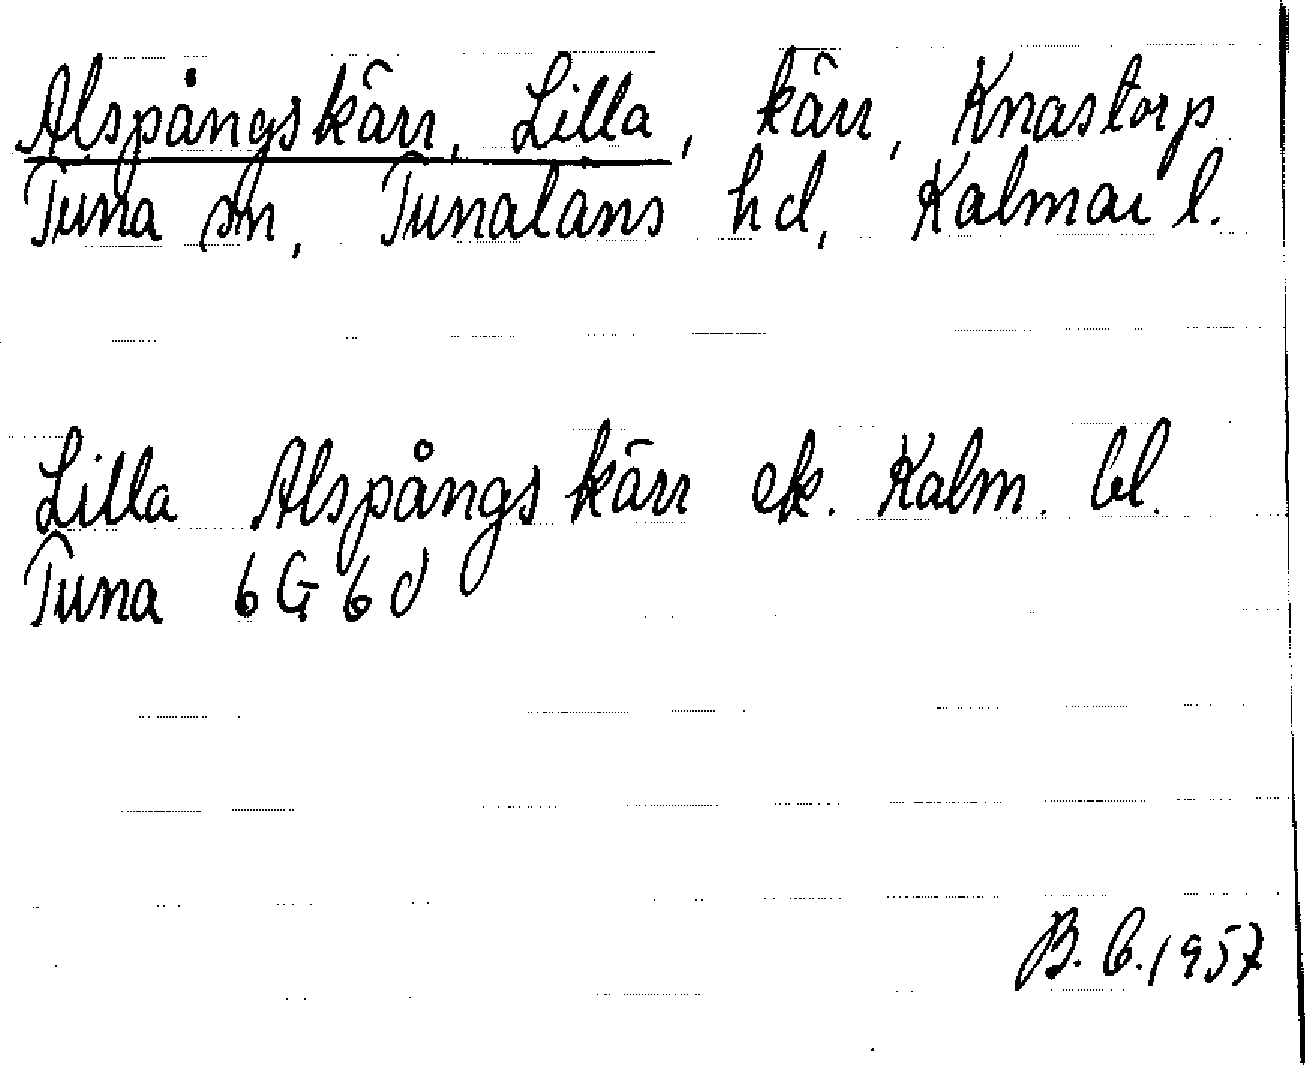 Alspångskärr, Lilla, kärr, Knastorp
Tuna sn, Tunaläns hd, Kalmar l.
Lilla Alspångskärr ek. Kalm. bl.
Tuna 6G6d
B. C. 1957